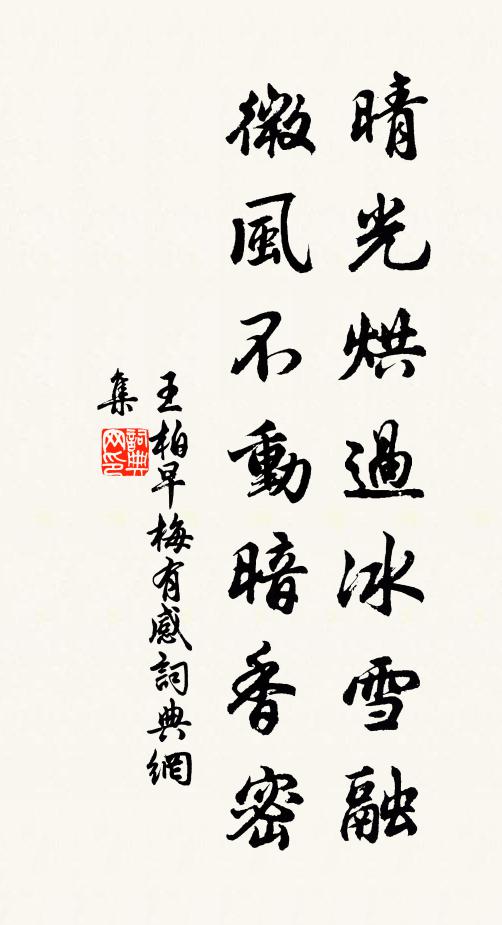 晴光烘過冰雪融
微風不動暗香密
王柏早梅有感詞典網
集
詞典
网印